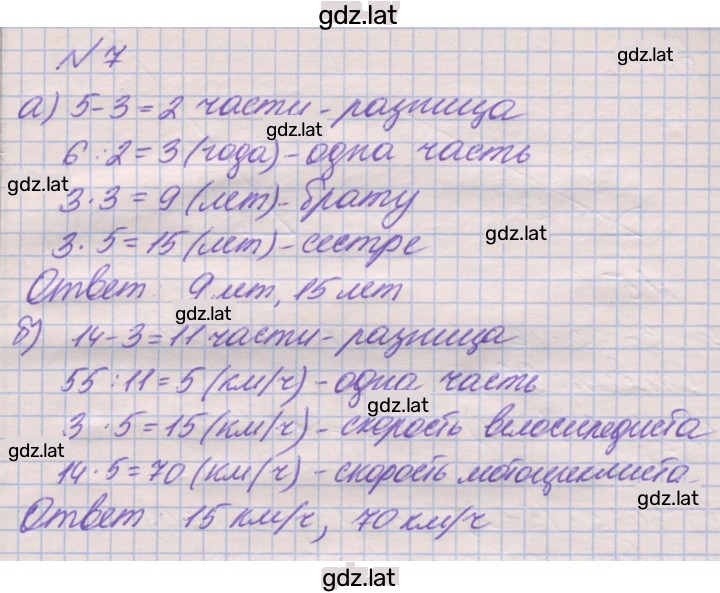 gdz.lat
№7
gdz.lat
а) 5-3=2 части - разница
gdz.lat
6:2=3 (года) - одна часть
gdz.lat
3·3=9 (лет) - брату
gdz.lat
3·5=15 (лет) - сестре
Ответ: 9 лет, 15 лет
gdz.lat
б) 14-3=11 части - разница
55:11=5 (км/ч) - одна часть
gdz.lat
3·5=15 (км/ч) - скорость велосипедиста
gdz.lat
14·5=70 (км/ч) - скорость мотоциклиста
gdz.lat
Ответ: 15 км/ч, 70 км/ч
gdz.lat